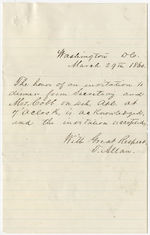 Washington D.C.
March 29th 1860.
The honor of an invitation to
dinner from Secretary and
Mrs. Cobb on 4th Apl. at
7 o'clock is acknowledged,
and the invitation accepted.
With Great Respect
Allan.